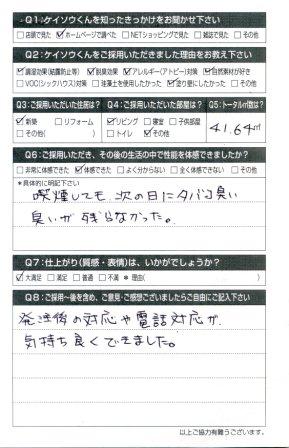 Q1：ケイソウくんを知ったきっかけをお聞かせ下さい
□店頭で見た ☑ホームページで調べた □NETショッピングで見た □雑誌で見た □その他
Q2：ケイソウくんをご採用いただきました理由をお教え下さい
☑調湿効果(結露防止等) ☑脱臭効果 ☑アレルギー(アトピー)対策 ☑自然素材が好き
□VOC(シックハウス)対策 □珪藻土を使用したかった ☑塗り壁にしたかった □その他
Q3：ご採用いただいた住居は？ Q4：ご採用いただいた部屋は？ Q5：トータル㎡数は？
☑新築 □リフォーム ☑リビング □寝室 □子供部屋 41.64㎡
□その他( ) □トイレ ☑その他
Q6：ご採用いただき、その後の生活の中で性能を体感できましたか？
□非常に体感できた ☑体感できた □よく分からない □全く体感できない □その他
＊具体的に明記下さい
喫煙しても、次の日にタバコ臭い
臭いが残らなかった。
Q7：仕上がり(質感・表情)は、いかがでしょうか？
☑大満足 □満足 □普通 □不満 ＊理由( )
Q8：ご採用～後を含め、ご意見・ご感想ございましたらご自由にご記入下さい
発注後の対応や電話対応が、
気持ち良くできました。
以上ご協力有難うございます。